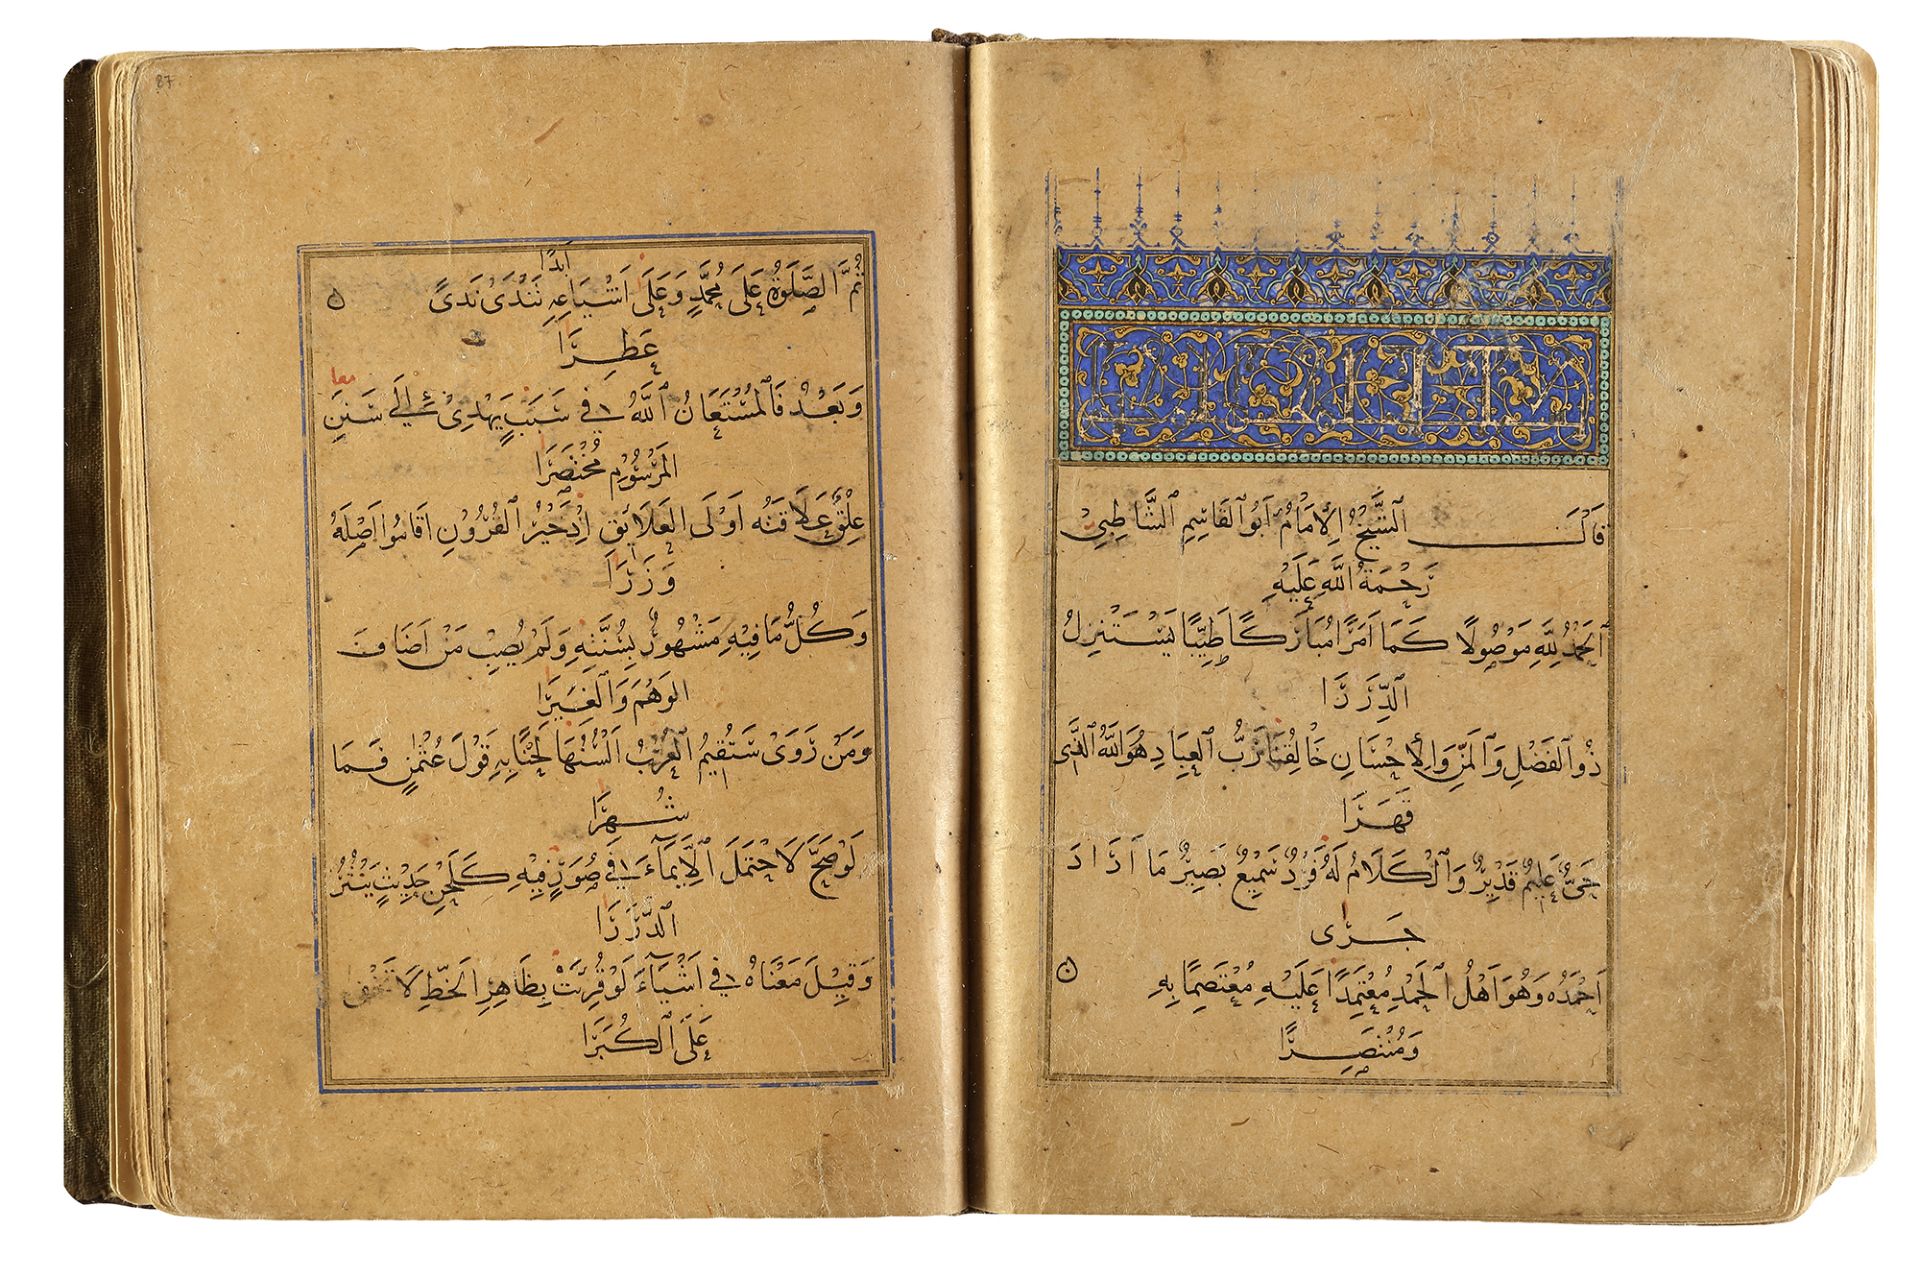 قَالَ الشَّيْخُ الْإِمَامُ أَبُو الْقَاسِمِ الشَّاطِبِيُّ
رَحْمَةُ اللَّهِ عَلَيْهِ
اَلْحَمْدُ لِلَّهِ مَوْصُولًا كَمَا اَمَرَا مُبَارَكًا طَيِّبًا يَسْتَنْزِلُ
الدِّرَرَا
ذُو الْفَضْلِ وَالْمَنِّ وَالْإِحْسَانِ خَالِقُنَا رَبُّ الْعِبَادِ هُوَ اللَّهُ الَّذِي
قَهَرَا
حَيٌّ عَلِيمٌ قَدِيرٌ وَالْكَلَامُ لَهُ فَرْدٌ سَمِيعٌ بَصِيرٌ مَا اَرَادَ
جَرَى
اَحْمَدُهُ وَهُوَ اَهْلُ الْحَمْدِ مُعْتَمِدًا عَلَيْهِ مُعْتَصِمًا بِهِ
وَمُنْتَصِرًا
87
ثُمَّ الصَّلَوةُ عَلَى مُحَمَّدٍ وَعَلَى اَشْيَاعِهِ تَنْدَى نَدًى
اَبَدًا
عَطِرَا
وَبَعْدُ فَالْمُسْتَعَانُ اللَّهُ فِي سَبَبٍ يَهْدِي إِلَى سَنَنِ
معا
الْمَرْسُومِ مُخْتَصَرَا
عِلْقٌ عَلَاقَتُهُ اَوْلَى الْعَلَائِقِ اِذْ خَيْرُ الْقُرُونِ اَقَامُوا اَصْلَهُ
وَزَرَا
وَكُلُّ مَا فِيهِ مَشْهُورٌ بِسُنَّتِهِ وَلَمْ يُصِبْ مَنْ اَضَافَ
الْوَهْمَ وَالْغِيَرَا
وَمَنْ رَوَى سَتُقِيمُ الْعُرْبُ اَلْسُنُهَا لَحْنًا بِهِ قَوْلَ عُثْمٰنٍ فَمَا
شُهِرَا
لَوْ صَحَّ لَاحْتَمَلَ الْإِيمَاءَ فِي صُوَرٍ فِيهِ كَلَحْنِ حَدِيثٍ يَنْثُرُ
الدُّرَرَا
وَقِيلَ مَعْنَاهُ فِي اَشْيَاءَ لَوْ قُرِئَتْ بِظَاهِرِ الْخَطِّ لَا تَخْفَى
عَلَى الْكُبَرَا